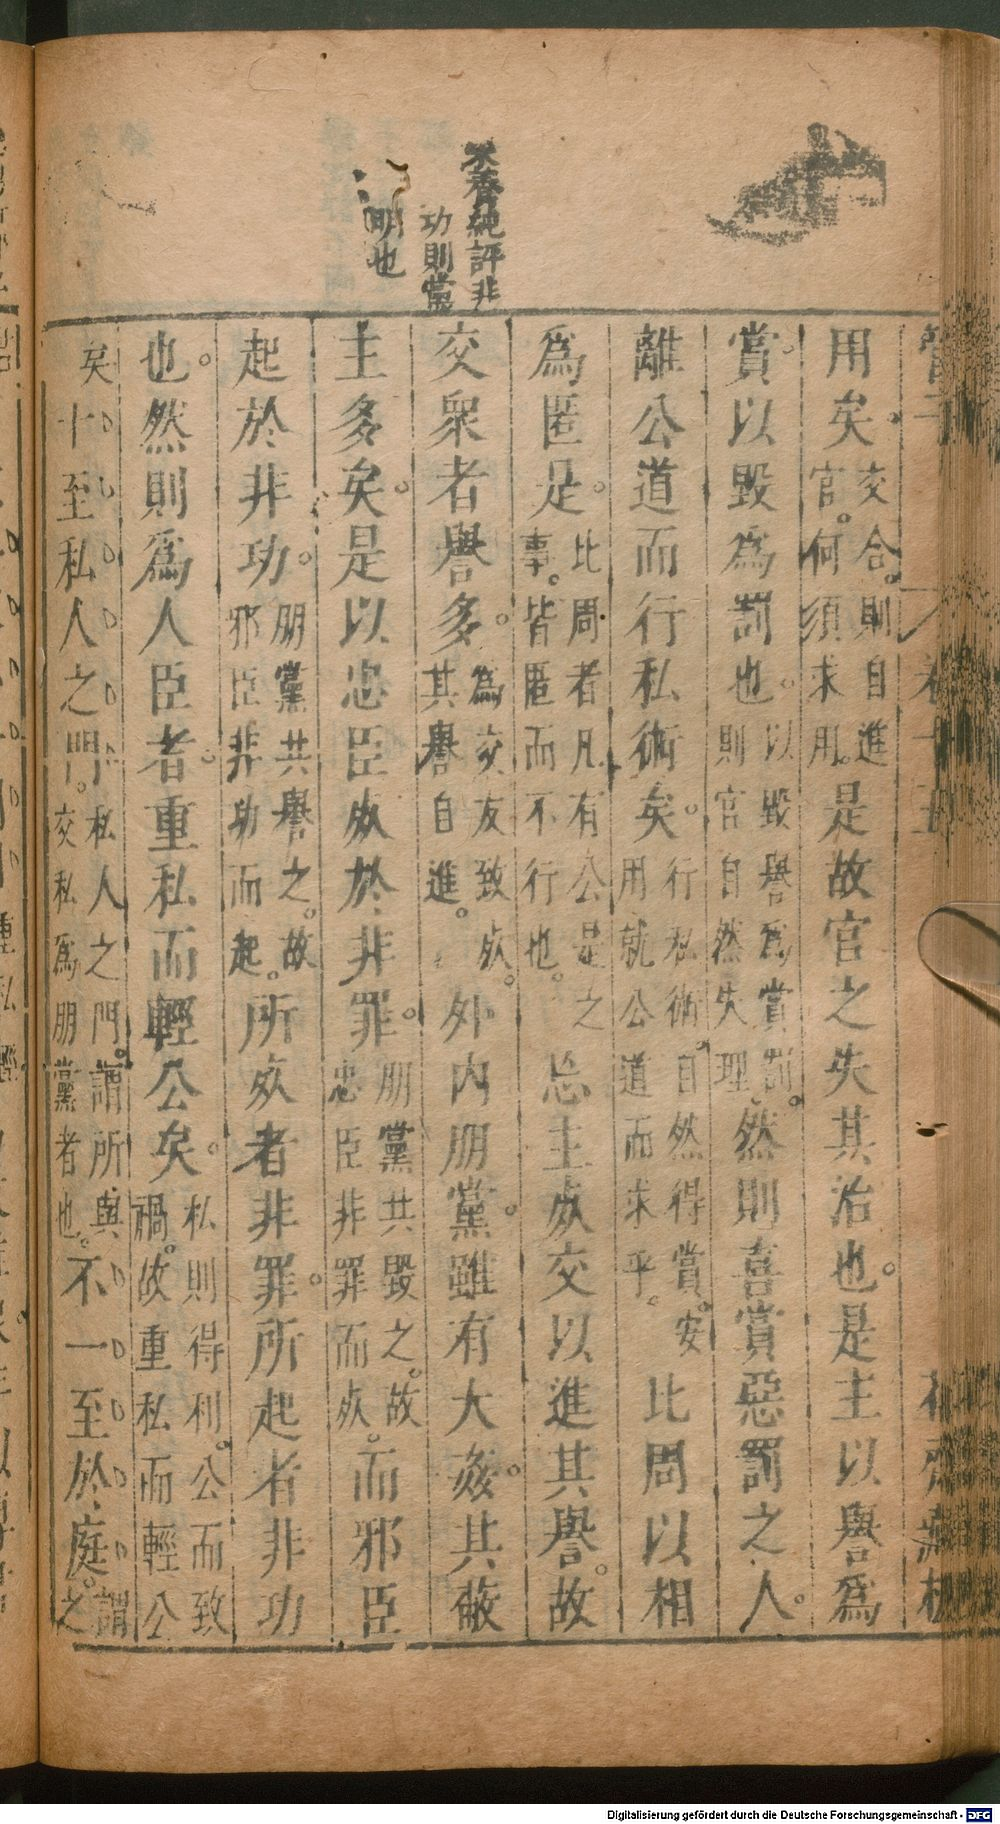 用矣交合則自進官何須求用是故官之失其治也是主以譽為
賞以毀為罰也以毀譽為賞罰則官自然失理然則喜賞惡罰之人
離公道而行私術矣行私術自然得賞安用就公道而求乎比周以相
為匿是比周者凡有公是之事皆匿而不行也忘主𣦸交以進其譽故
交衆者譽多為交友致𣦸其譽自進外内朋黨雖有大姦其蔽
主多矣是以忠臣𣦸於非罪朋黨共毀之故忠臣非罪而𣦸而邪臣
起於非功朋黨共譽之故邪臣非功而起所𣦸者非罪所起者非功
也然則爲人臣者重私而輕公矣私則得利公而致禍故重私而輕公
矣十至私人之門私人之門謂所與交私爲朋黨者也不一至於庭謂之
養純評非
功則黨
明也
管子
卷十五
Digitalisierung gefördert durch die Deutsche Forschungsgemeinschaft - DFG